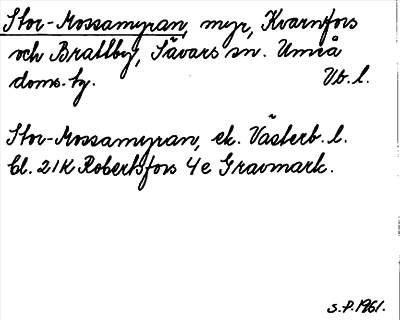 Stor-Mossamyran, myr, Kvarnfors
och Brattby, Sävars sn. Umeå
doms. tg. Vb. l.
Stor-Mossamyran, ek. Västerb. l.
bl. 21K Robertsfors 4e Gravmark.
S.P. 1961.